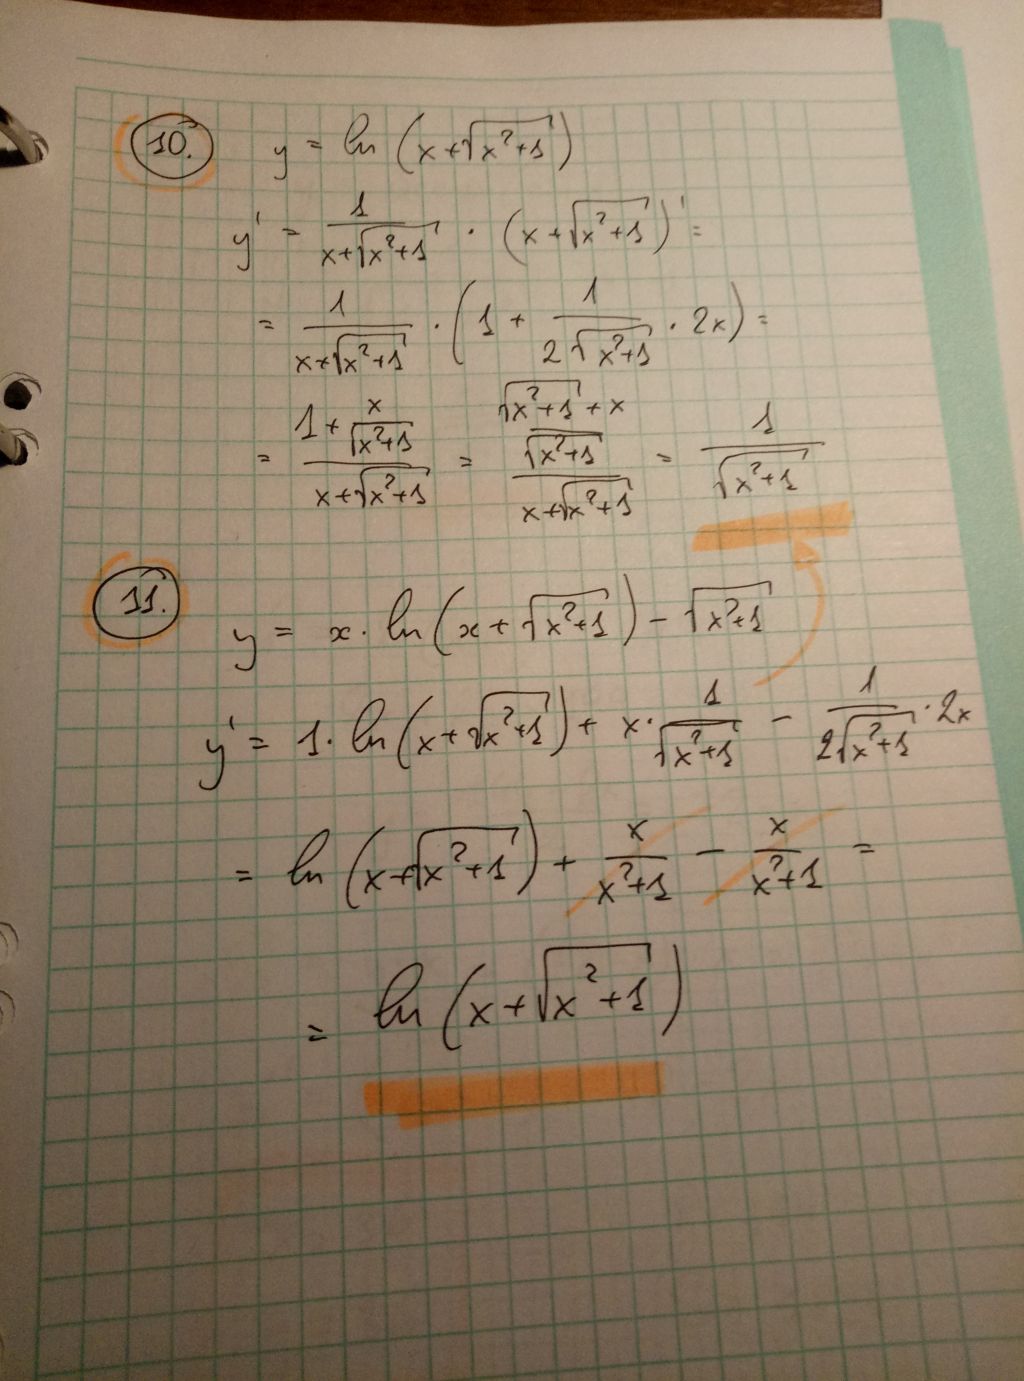 10. y = ln (x+√(x²+1))
y' = 1/(x+√(x²+1)) · (x+√(x²+1))' =
= 1/(x+√(x²+1)) · (1 + 1/(2√(x²+1)) · 2x) =
= (1+x/√(x²+1))/(x+√(x²+1)) = ((√(x²+1)+x)/√(x²+1))/(x+√(x²+1)) = 1/√(x²+1)
11. y = x · ln(x+√(x²+1)) - √(x²+1)
y' = 1 · ln(x+√(x²+1)) + x · 1/√(x²+1) - 1/(2√(x²+1)) · 2x
= ln (x+√(x²+1)) + x/(x²+1) - x/(x²+1) =
= ln (x+√(x²+1))